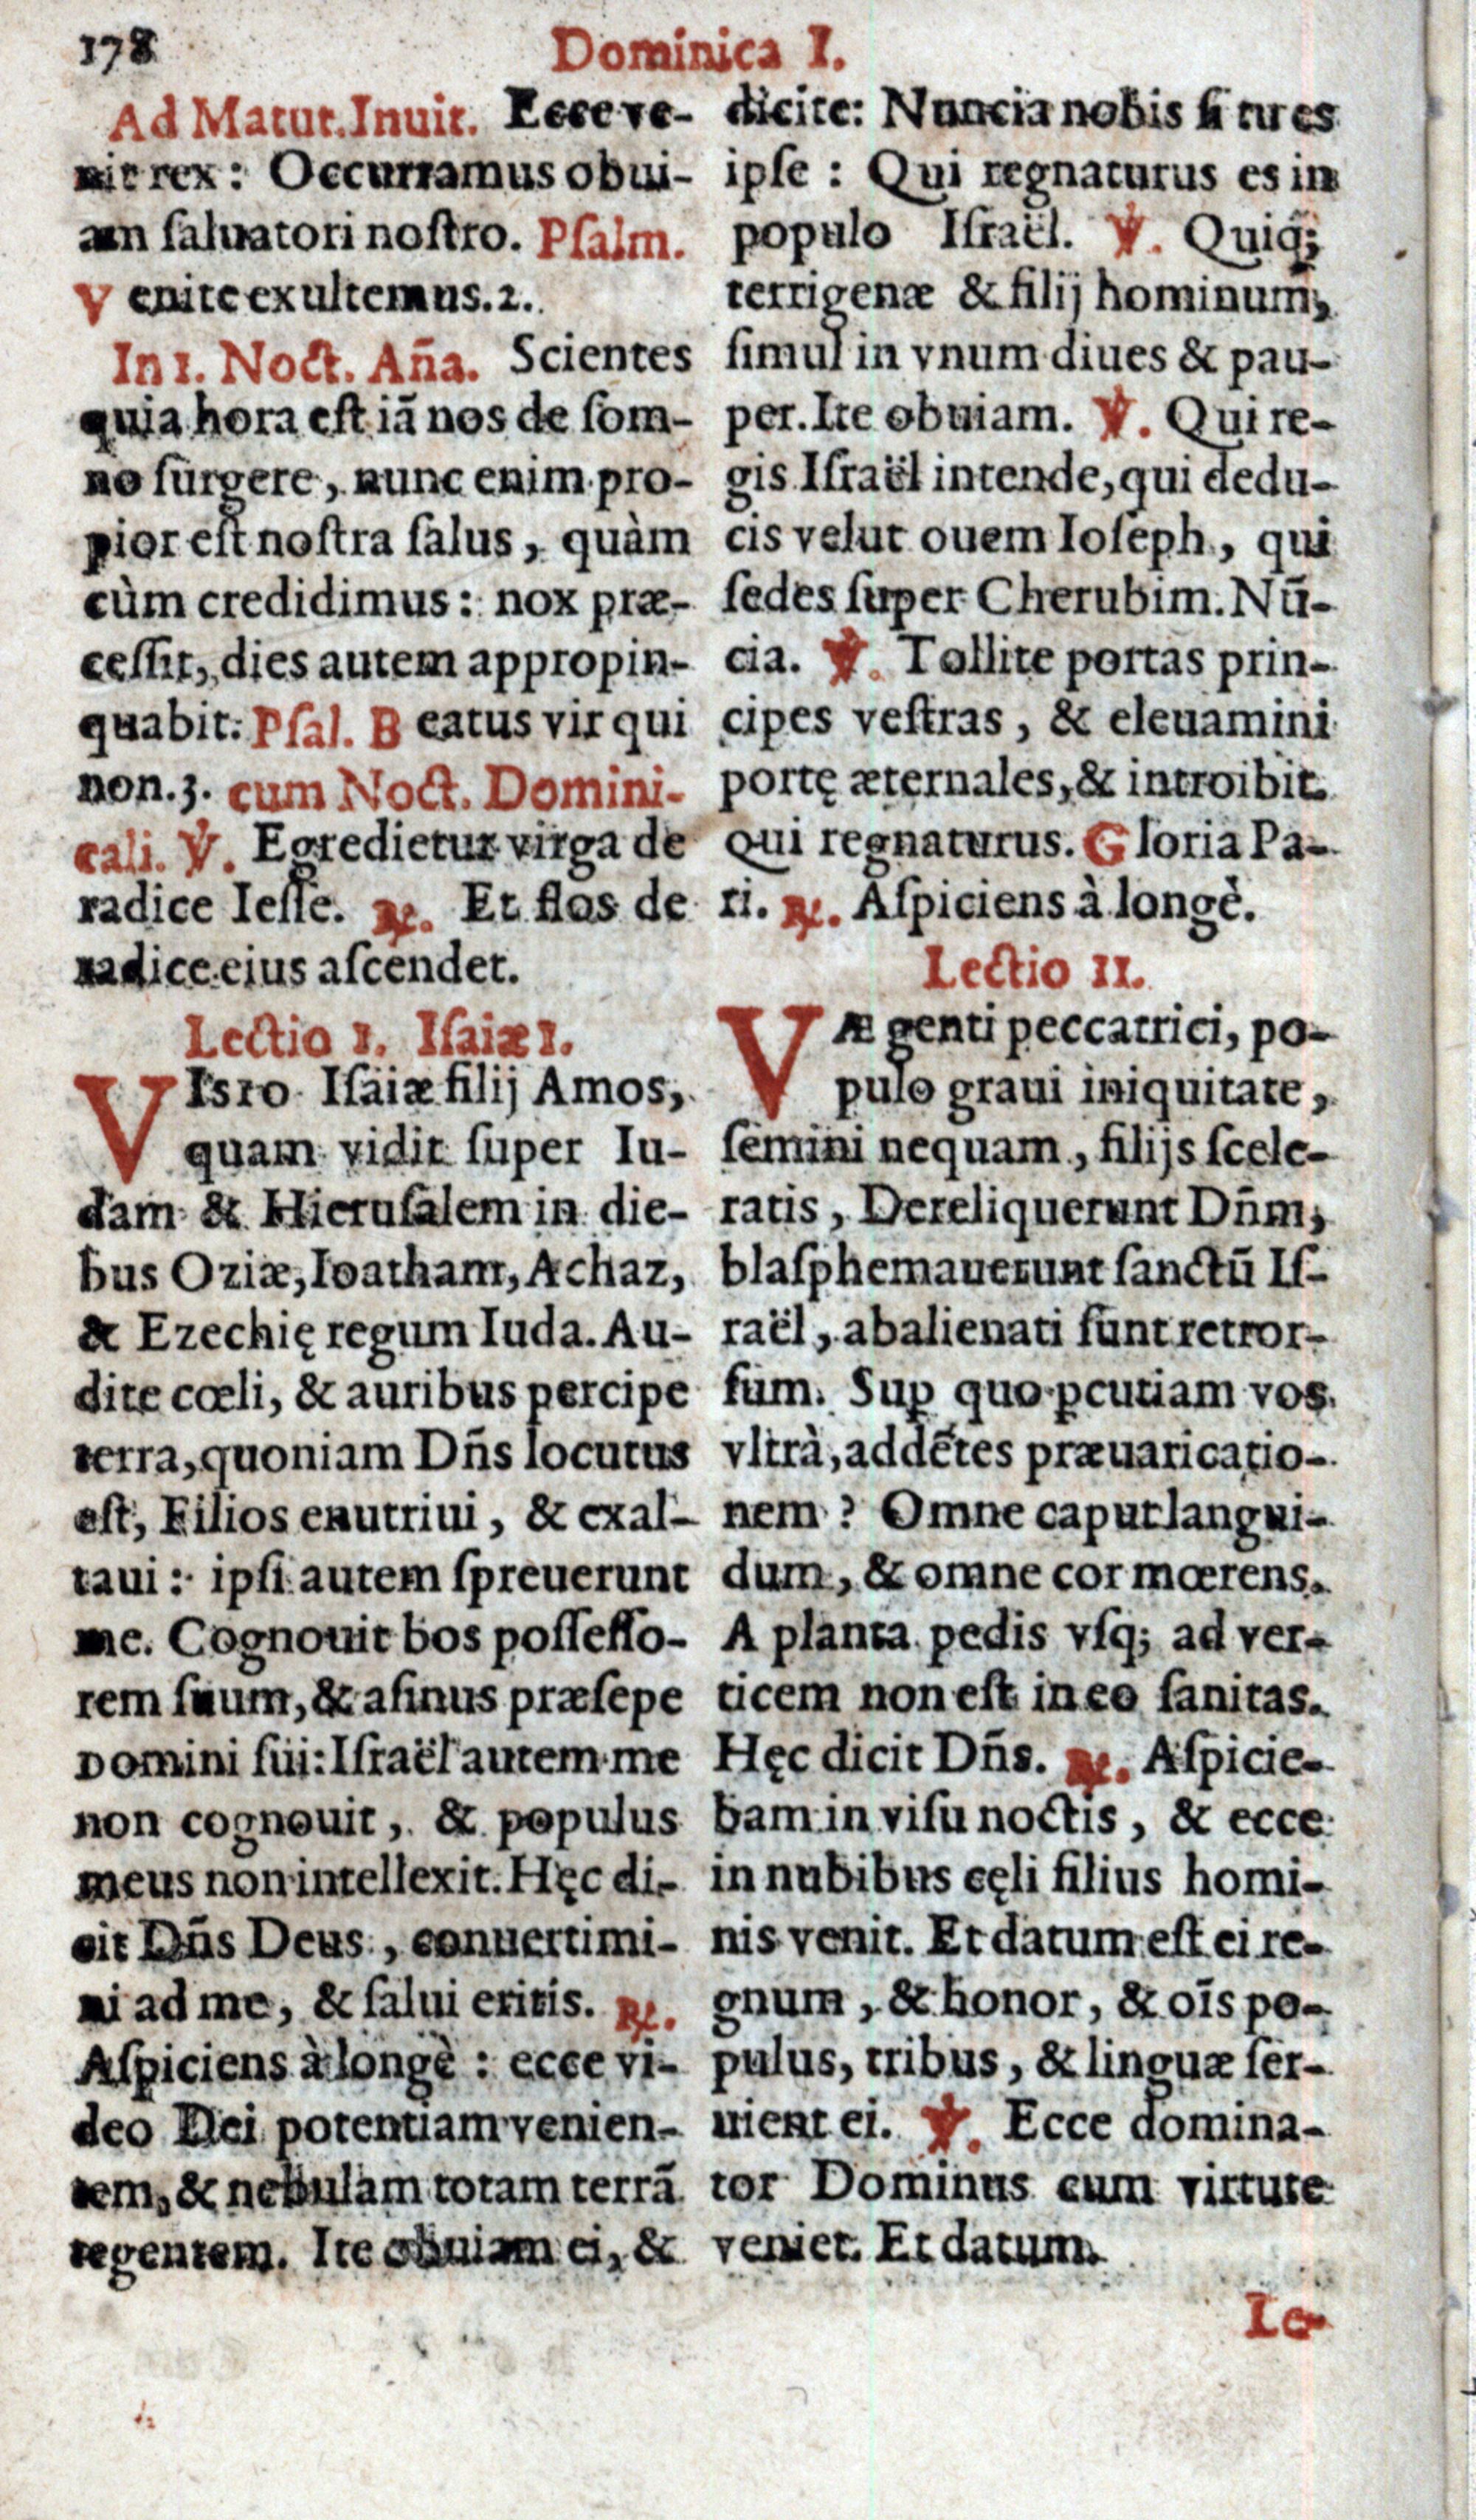 178
Dominica I.
Ad Matut. Inuit. Ecce ve-
nit rex: Occurramus obui-
am ſaluatori noſtro. Pſalm.
V enite exultemus. 2.
In 1. Noct. Aña. Scientes
quia hora eſt iã nos de ſom-
no ſurgere, nunc enim pro-
pior eſt noſtra ſalus, quàm
cùm credidimus: nox præ-
ceſſit, dies autem appropin-
quabit. Pſal. B eatus vir qui
non. 3. cum Noct. Domini-
cali. ℣. Egredietur virga de
radice Ieſſe. ℟. Et flos de
radice eius aſcendet.
Lectio 1. Iſaiæ 1.
VISIO Iſaiæ filij Amos,
quam vidit ſuper Iu-
dam & Hieruſalem in die-
bus Oziæ, Ioatham, Achaz,
& Ezechię regum Iuda. Au-
dite cœli, & auribus percipe
terra, quoniam Dñs locutus
eſt, Filios enutriui, & exal-
taui: ipſi autem ſpreuerunt
me. Cognouit bos poſſeſſo-
rem ſuum, & aſinus præſepe
Domini ſui: Iſraël autem me
non cognouit, & populus
meus non intellexit. Hęc di-
cit Dñs Deus, conuertimi-
ni ad me, & ſalui eritis. ℟.
Aſpiciens à longè: ecce vi-
deo Dei potentiam venien-
tem, & nebulam totam terrã
tegentem. Ite obuiam ei, &
dicite: Nuncia nobis ſi tu es
ipſe: Qui regnaturus es in
populo Iſraël. ℣. Quiq;
terrigenæ & filij hominum,
ſimul in vnum diues & pau-
per. Ite obuiam. ℣. Qui re-
gis Iſraël intende, qui dedu-
cis velut ouem Ioſeph, qui
ſedes ſuper Cherubim. Nũ-
cia. ℣. Tollite portas prin-
cipes veſtras, & eleuamini
portę æternales, & introibit.
qui regnaturus. G loria Pa-
tri. ℟. Aſpiciens à longè.
Lectio II.
VÆ genti peccatrici, po-
pulo graui iniquitate,
ſemini nequam, filijs ſcele-
ratis, Dereliquerunt Dñm,
blaſphemauerunt ſanctũ Iſ-
raël, abalienati ſunt retror-
ſum. Suꝑ quo ꝑcutiam vos
vltrà, addẽtes præuaricatio-
nem? Omne caput langui-
dum, & omne cor mœrens.
A planta pedis vſq; ad ver-
ticem non eſt in eo ſanitas.
Hęc dicit Dñs. ℟. Aſpicie-
bam in viſu noctis, & ecce
in nubibus cęli filius homi-
nis venit. Et datum eſt ei re-
gnum, & honor, & oĩs po-
pulus, tribus, & linguæ ſer-
uient ei. ℣. Ecce domina-
tor Dominus cum virtute
veniet. Et datum.
Le-